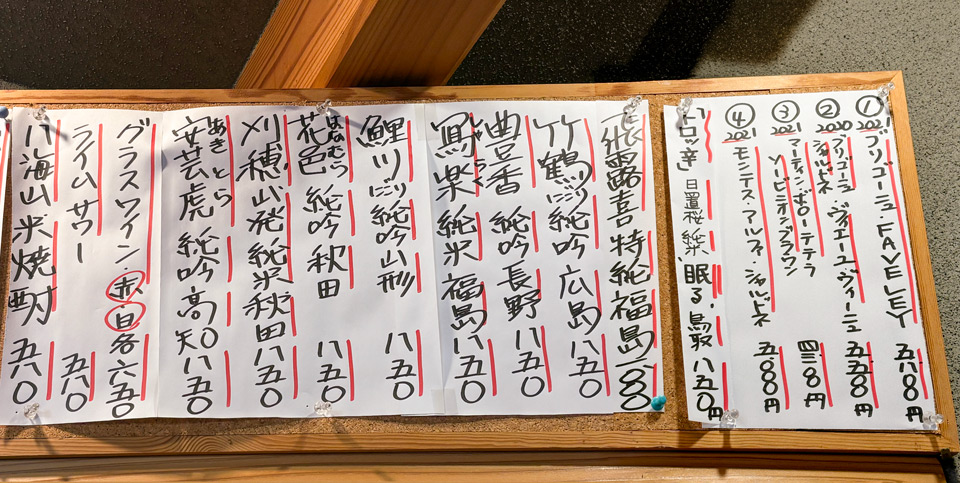 ① 2021 ブリゴーニュ・FAVELEY 五八〇〇円
② 2020 ブルゴーニュ シャルドネ ヴィエーユ・ヴィーニュ 五五〇〇円
③ 2021 マーティン・ポローテテラ ソービニオンブラウン 円
④ 2021 モンテス・アルファ・シャルドネ 五〇〇〇円
日置桜 純米 眠る。鳥取 八五〇円
飛露喜 特純 福島
竹鶴 にごり 純吟 広島 八五〇
豊香 純吟 長野 八五〇
しゃらく
寫楽 純米 福島 八五〇
鯉川 にごり 純吟 山形 八五〇
はなむら
花邑 純吟 秋田 八五〇
刈穂 山廃純米 秋田 八五〇
あきとら
安芸虎 純吟 高知 八五〇
グラスワイン・赤・白 各六五〇
ライムサワー 五八〇
八海山米焼酎 五八〇